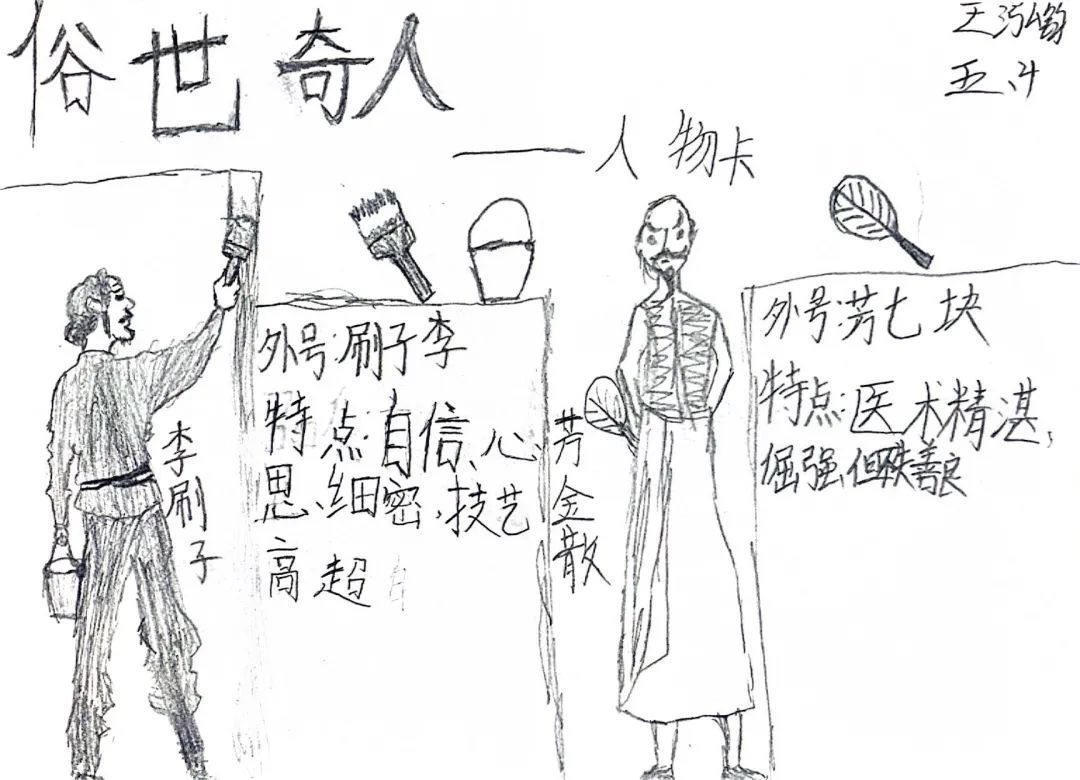 俗世奇人
——人物卡
王泓
李刷子
外号:刷子李
特点:自信、心
思、细密、技艺
高超
芳金散
外号:芳七块
特点:医术精湛,
倔强,但善良